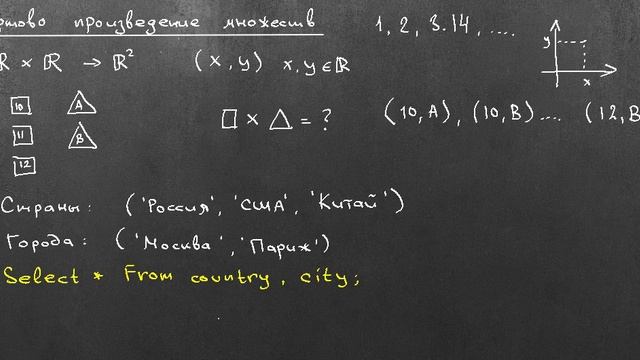 произведение множеств
1, 2, 3.14, ....
y
x
ℝ × ℝ → ℝ² (x, y) x, y ∈ ℝ
10 A
11 B
12
□ × △ = ?
(10, A), (10, B) .... (12, B
Страны: ('Россия', 'США', 'Китай')
Города: ('Москва', 'Париж')
Select * From country, city;